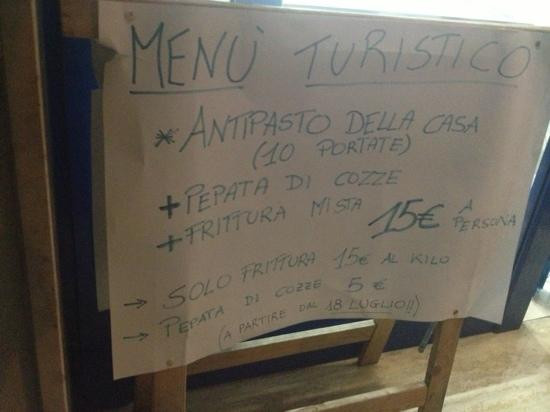 MENÙ TURISTICO
* ANTIPASTO DELLA CASA
(10 PORTATE)
+ PEPATA DI COZZE
+ FRITTURA MISTA 15€ A PERSONA
→ SOLO FRITTURA 15€ AL KILO
→ PEPATA DI COZZE 5 €
(A PARTIRE DAL 18 LUGLIO!!)